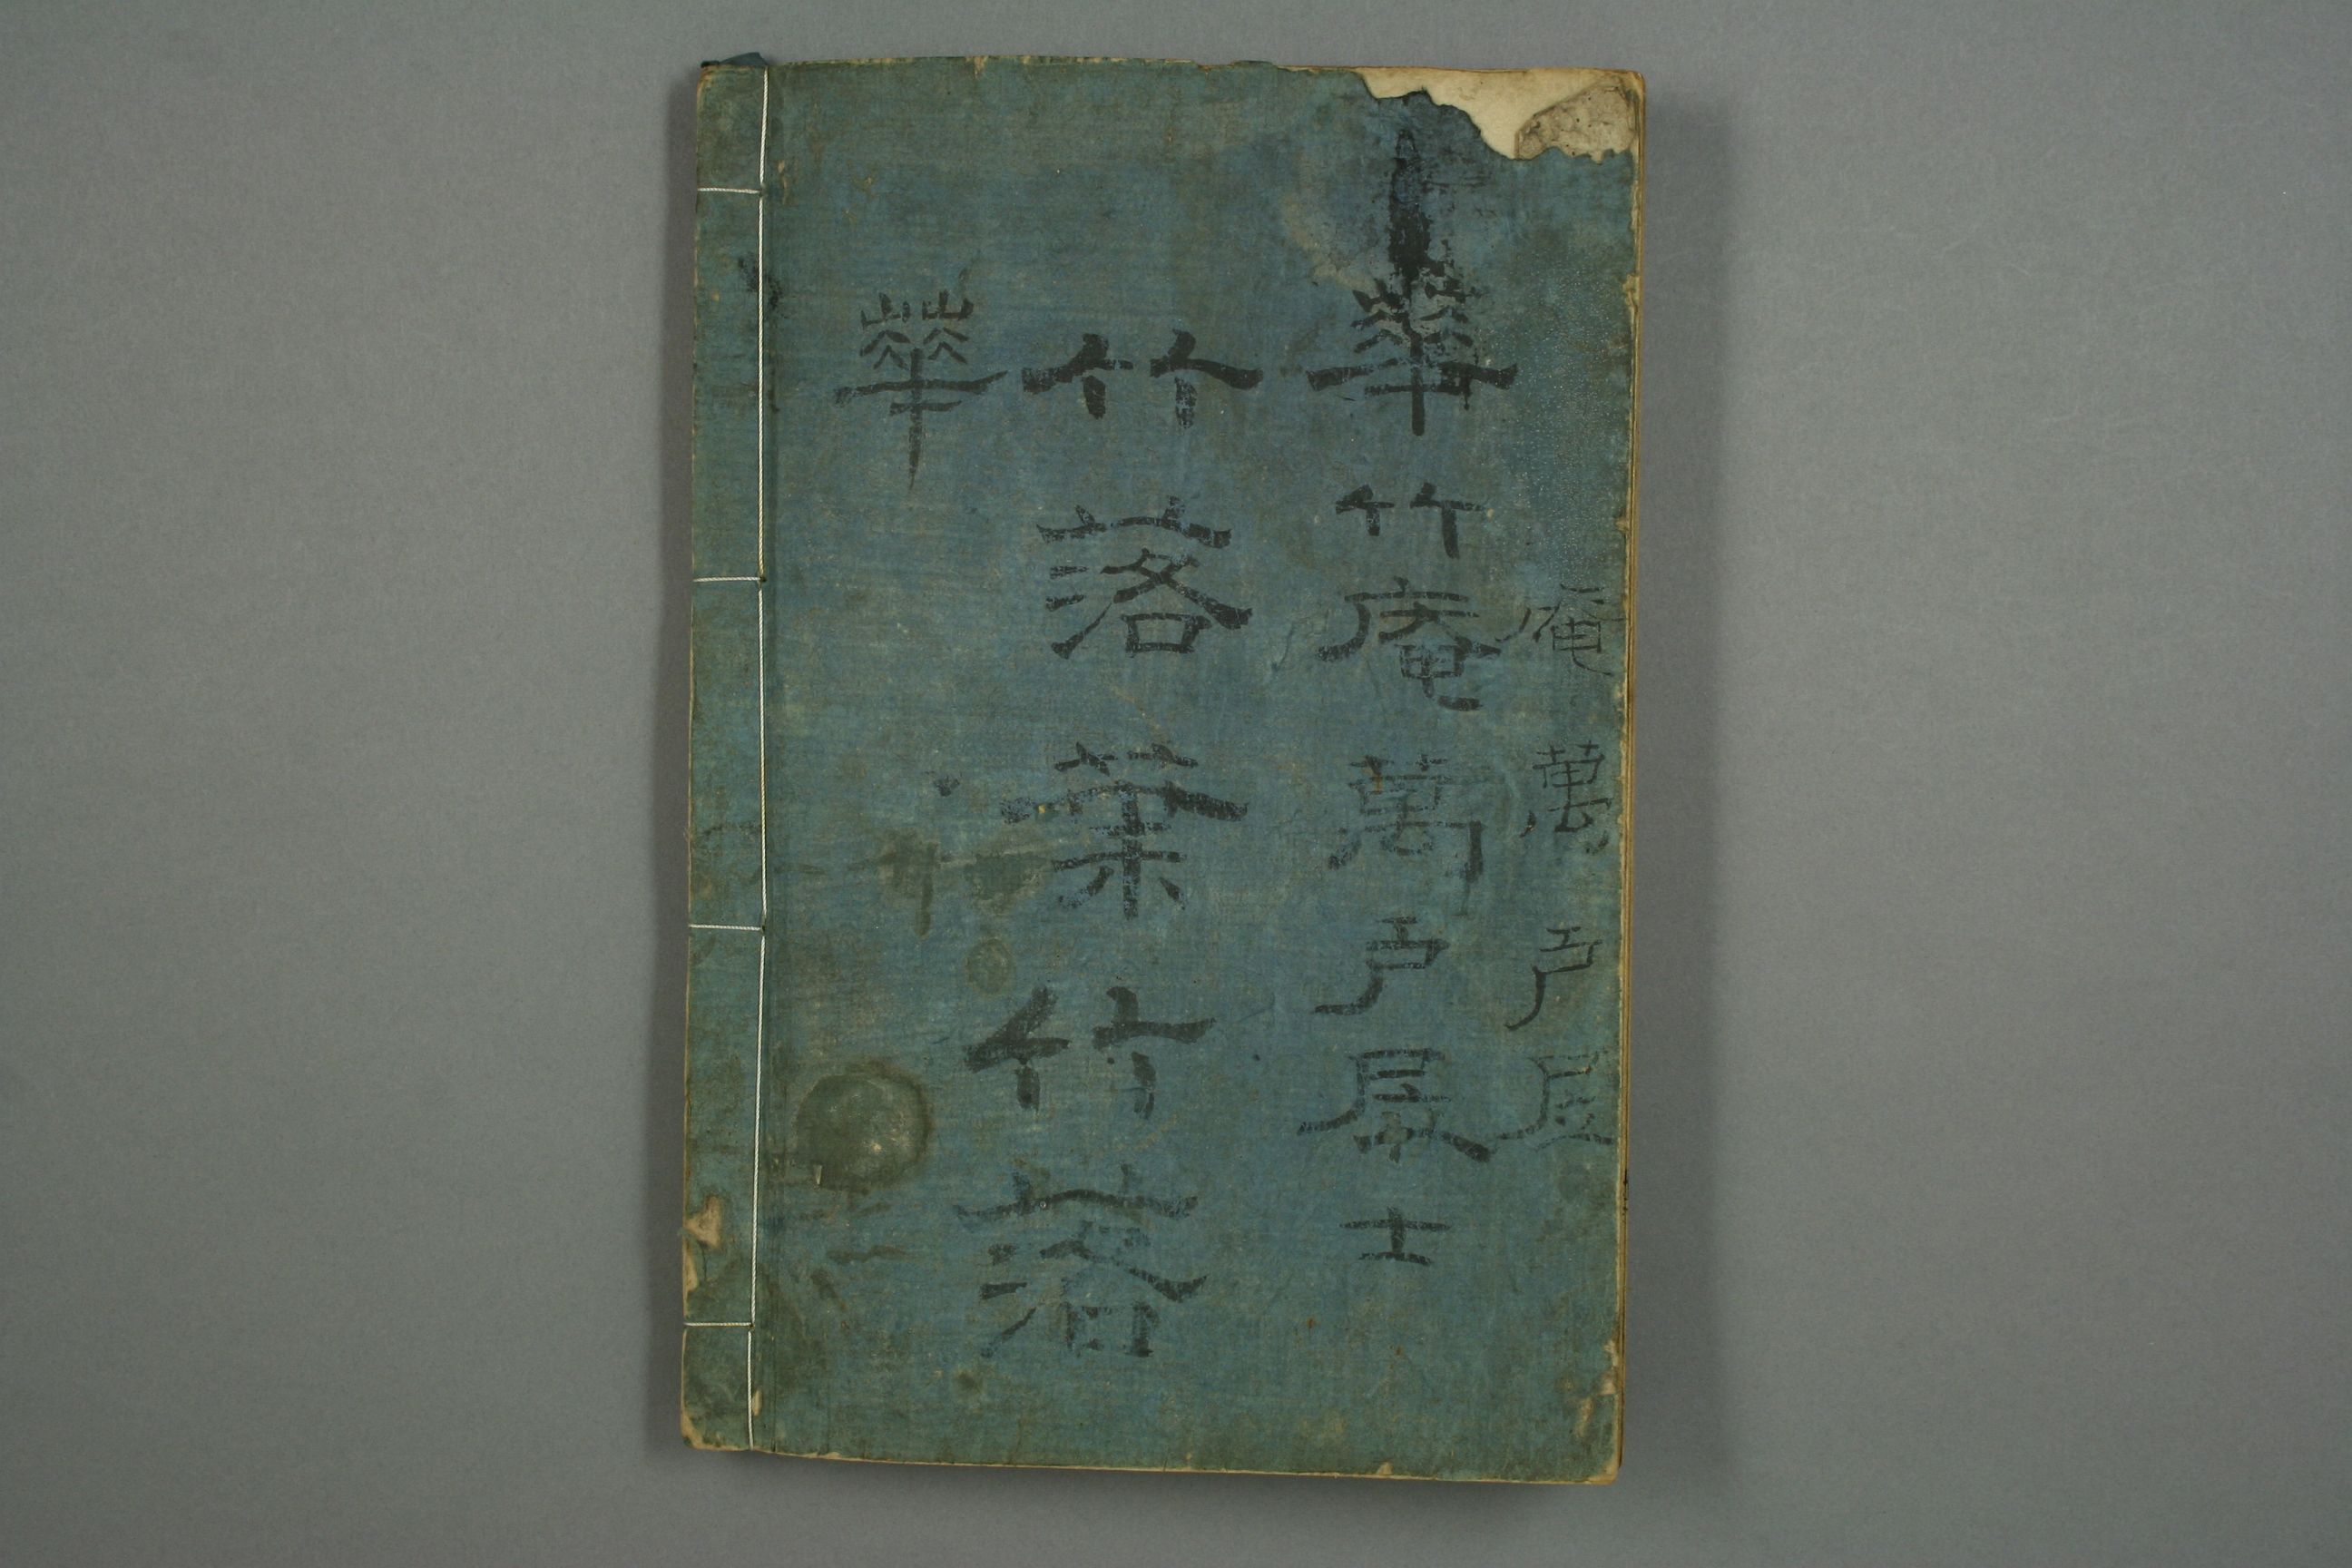 庵萬戸
華竹庵萬戸居士
竹落葉竹落
華